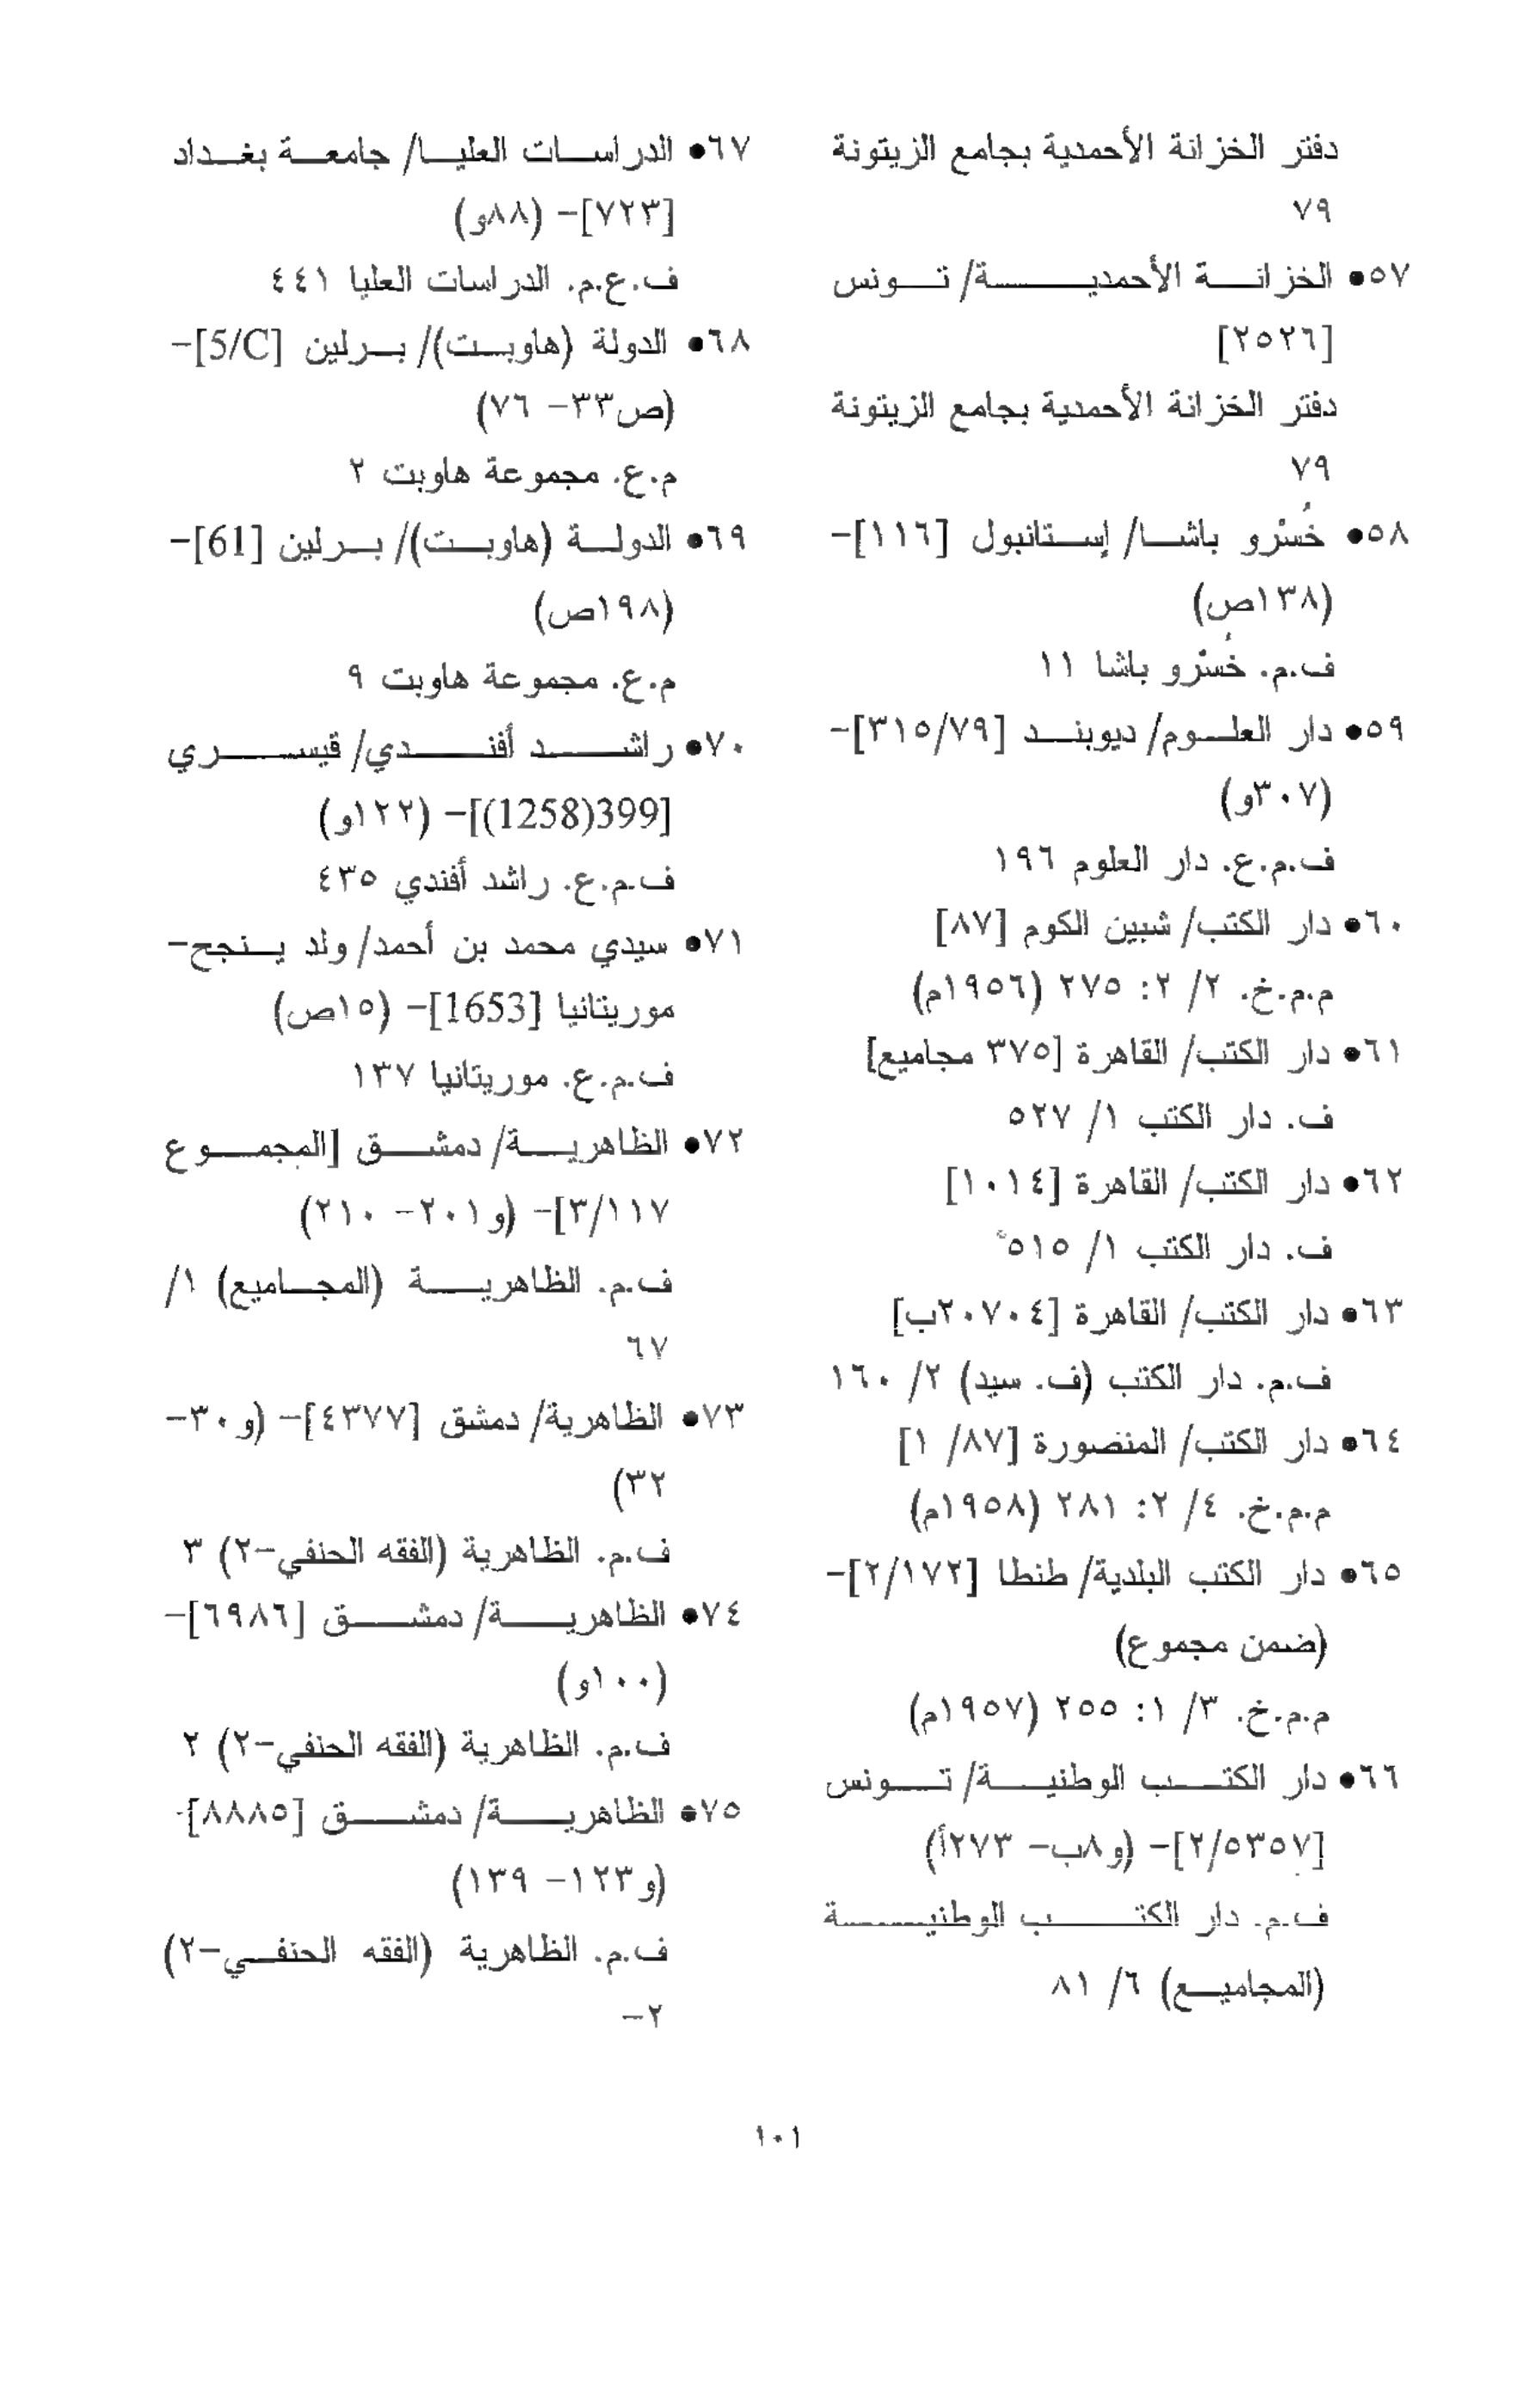 دفتر الخزانة الأحمدية بجامع الزيتونة
٧٩
٥٧• الخزانة الأحمدية/ تونس
[٢٥٢٦]
دفتر الخزانة الأحمدية بجامع الزيتونة
٧٩
٥٨• خُسْرو باشا/ إستانبول [١١٦]-
(١٣٨ص)
ف.م. خُسْرو باشا ١١
٥٩• دار العلوم/ ديوبند [٣١٥/٧٩]-
(٣٠٧و)
ف.م.ع. دار العلوم ١٩٦
٦٠• دار الكتب/ شبين الكوم [٨٧]
م.م.خ. ٢/ ٢: ٢٧٥ (١٩٥٦م)
٦١• دار الكتب/ القاهرة [٣٧٥ مجاميع]
ف. دار الكتب ١/ ٥٢٧
٦٢• دار الكتب/ القاهرة [١٠١٤]
ف. دار الكتب ١/ ٥١٥
٦٣• دار الكتب/ القاهرة [٢٠٧٠٤ب]
ف.م. دار الكتب (ف. سيد) ٢/ ١٦٠
٦٤• دار الكتب/ المنصورة [٨٧/ ١]
م.م.خ. ٤/ ٢: ٢٨١ (١٩٥٨م)
٦٥• دار الكتب البلدية/ طنطا [٢/١٧٢]-
(ضمن مجموع)
م.م.خ. ٣/ ١: ٢٥٥ (١٩٥٧م)
٦٦• دار الكتب الوطنية/ تونس
[٢/٥٣٥٧]- (و٨ب- ٢٧٣أ)
ف.م. دار الكتب الوطنية
(المجاميع) ٦/ ٨١
٦٧• الدراسات العليا/ جامعة بغداد
[٧٢٣]- (٨٨و)
ف.ع.م. الدراسات العليا ٤٤١
٦٨• الدولة (هاوبت)/ برلين [5/C]-
(ص٣٣- ٧٦)
م.ع. مجموعة هاوبت ٢
٦٩• الدولة (هاوبت)/ برلين [61]-
(١٩٨ص)
م.ع. مجموعة هاوبت ٩
٧٠• راشد أفندي/ قيسري
[399(1258)]- (١٢٢و)
ف.م.ع. راشد أفندي ٤٣٥
٧١• سيدي محمد بن أحمد/ ولد ينجح-
موريتانيا [1653]- (١٥ص)
ف.م.ع. موريتانيا ١٣٧
٧٢• الظاهرية/ دمشق [المجموع
٣/١١٧]- (و٢٠١- ٢١٠)
ف.م. الظاهرية (المجاميع) ١/
٦٧
٧٣• الظاهرية/ دمشق [٤٣٧٧]- (و٣٠-
٣٢)
ف.م. الظاهرية (الفقه الحنفي-٢) ٣
٧٤• الظاهرية/ دمشق [٦٩٨٦]-
(١٠٠و)
ف.م. الظاهرية (الفقه الحنفي-٢) ٢
٧٥• الظاهرية/ دمشق [٨٨٨٥]-
(و١٢٣- ١٣٩)
ف.م. الظاهرية (الفقه الحنفي-٢)
٢-
١٠١